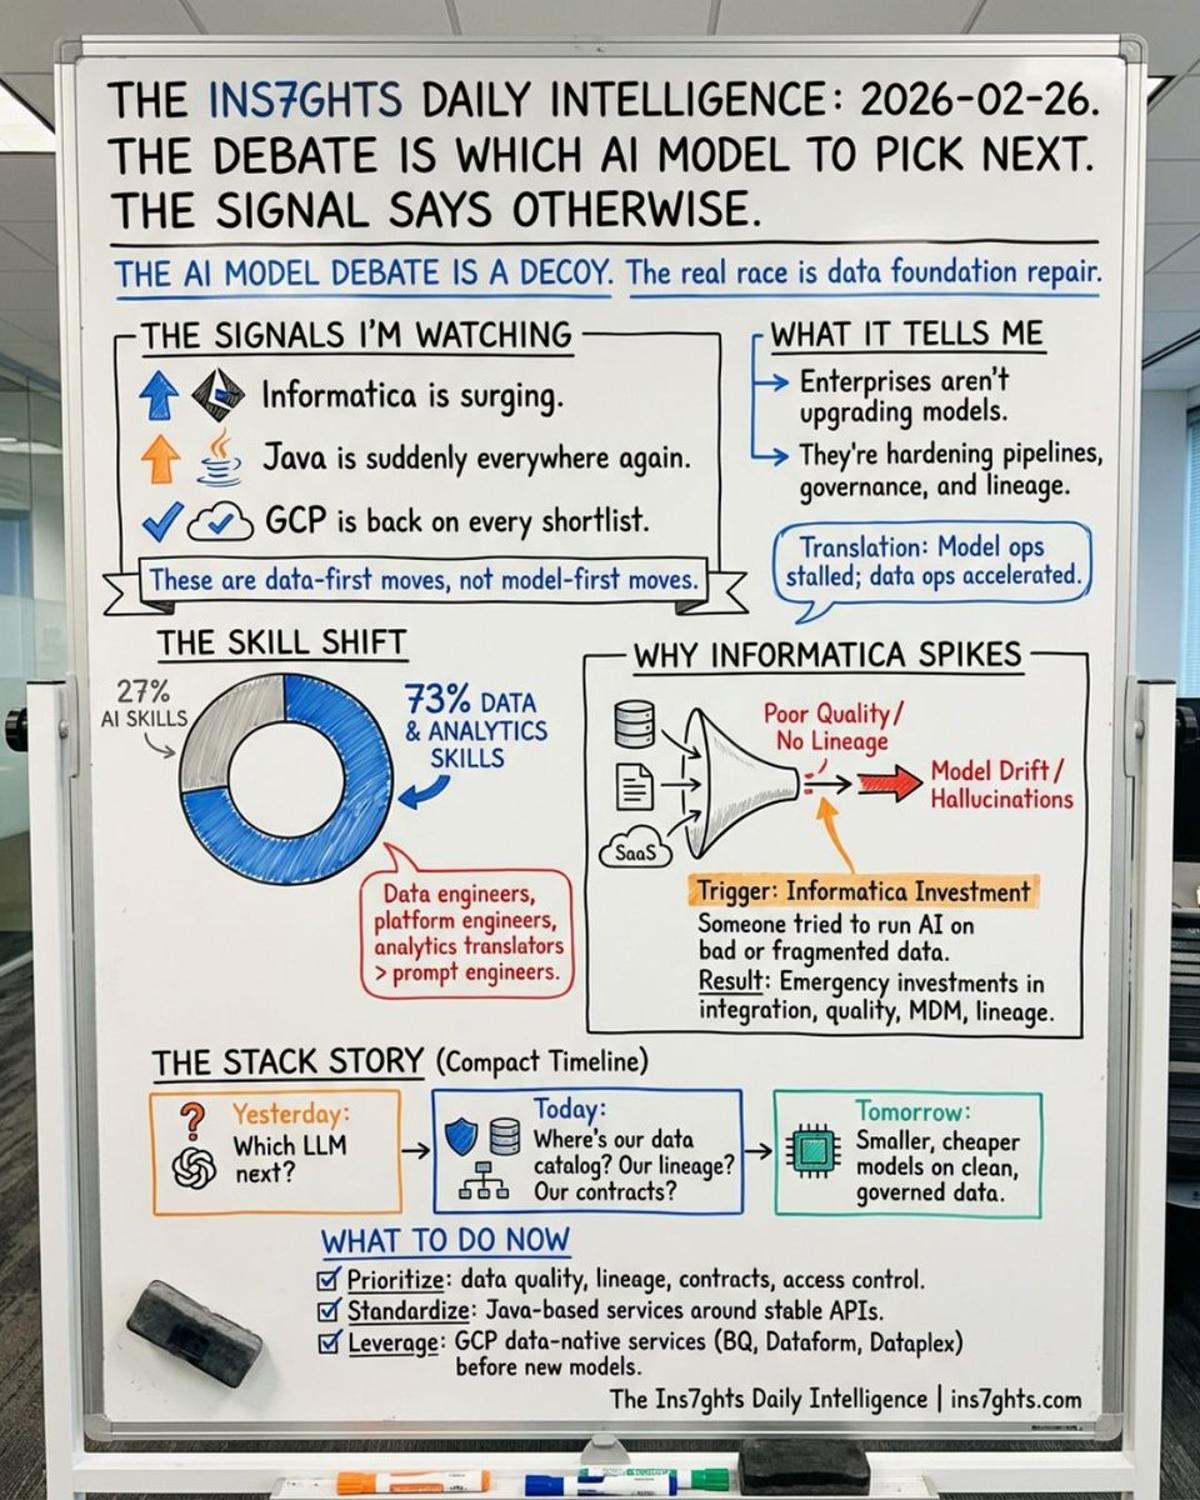 THE INS7GHTS DAILY INTELLIGENCE: 2026-02-26.
THE DEBATE IS WHICH AI MODEL TO PICK NEXT.
THE SIGNAL SAYS OTHERWISE.
THE AI MODEL DEBATE IS A DECOY. The real race is data foundation repair.
THE SIGNALS I'M WATCHING
Informatica is surging.
Java is suddenly everywhere again.
GCP is back on every shortlist.
These are data-first moves, not model-first moves.
WHAT IT TELLS ME
Enterprises aren't
upgrading models.
They're hardening pipelines,
governance, and lineage.
Translation: Model ops
stalled; data ops accelerated.
THE SKILL SHIFT
27%
AI SKILLS
73% DATA
& ANALYTICS
SKILLS
Data engineers,
platform engineers,
analytics translators
> prompt engineers.
WHY INFORMATICA SPIKES
SaaS
Poor Quality/
No Lineage
Model Drift/
Hallucinations
Trigger: Informatica Investment
Someone tried to run AI on
bad or fragmented data.
Result: Emergency investments in
integration, quality, MDM, lineage.
THE STACK STORY (Compact Timeline)
?
Yesterday:
Which LLM
next?
Today:
Where's our data
catalog? Our lineage?
Our contracts?
Tomorrow:
Smaller, cheaper
models on clean,
governed data.
WHAT TO DO NOW
Prioritize: data quality, lineage, contracts, access control.
Standardize: Java-based services around stable APIs.
Leverage: GCP data-native services (BQ, Dataform, Dataplex)
before new models.
The Ins7ghts Daily Intelligence | ins7ghts.com